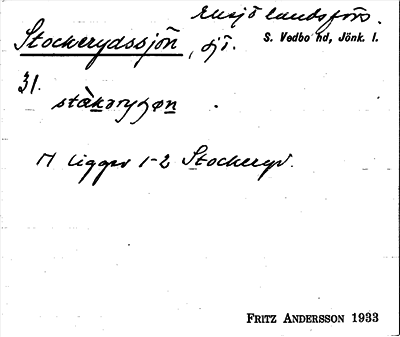 Ensjö landsförs.
Stockerydssjön, sjö. S. Vedbo hd, Jönk. l.
31.
ligger 1-2 Stockeryd.
FRITZ ANDERSSON 1933